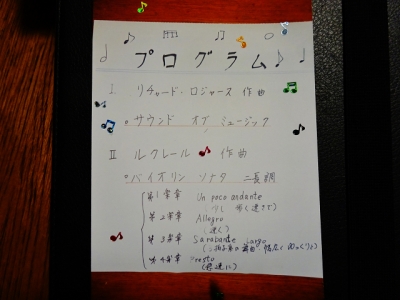 プログラム
I リチャード・ロジャース 作曲
サウンド オブ ミュージック
II ルクレール 作曲
バイオリン ソナタ ニ長調
第1楽章 Un poco andante
(少し 歩く速さで)
第2楽章 Allegro
(速く)
第3楽章 Sarabande Largo
第4楽章 Presto